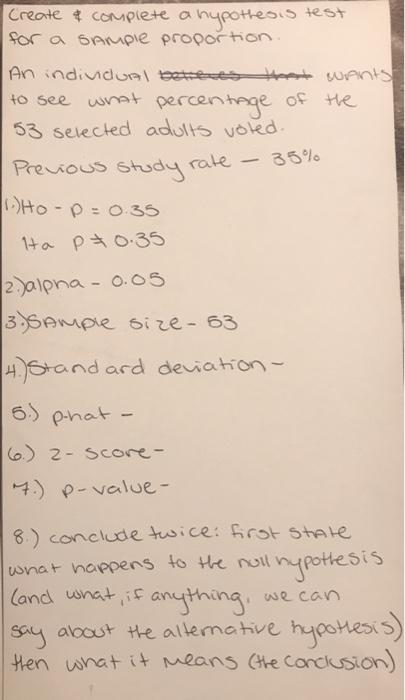 Create & complete a hypothesis test
for a sample proportion.
An individual wants
to see what percentage of the
53 selected adults voted.
Previous study rate - 35%
1.) Ho - p = 0.35
Ha p ≠ 0.35
2.) alpha - 0.05
3.) Sample size - 53
4.) Standard deviation -
5.) p-hat -
6.) z-score -
7.) p-value -
8.) conclude twice: first state
what happens to the null hypothesis
(and what, if anything, we can
say about the alternative hypothesis)
then what it means (the conclusion)